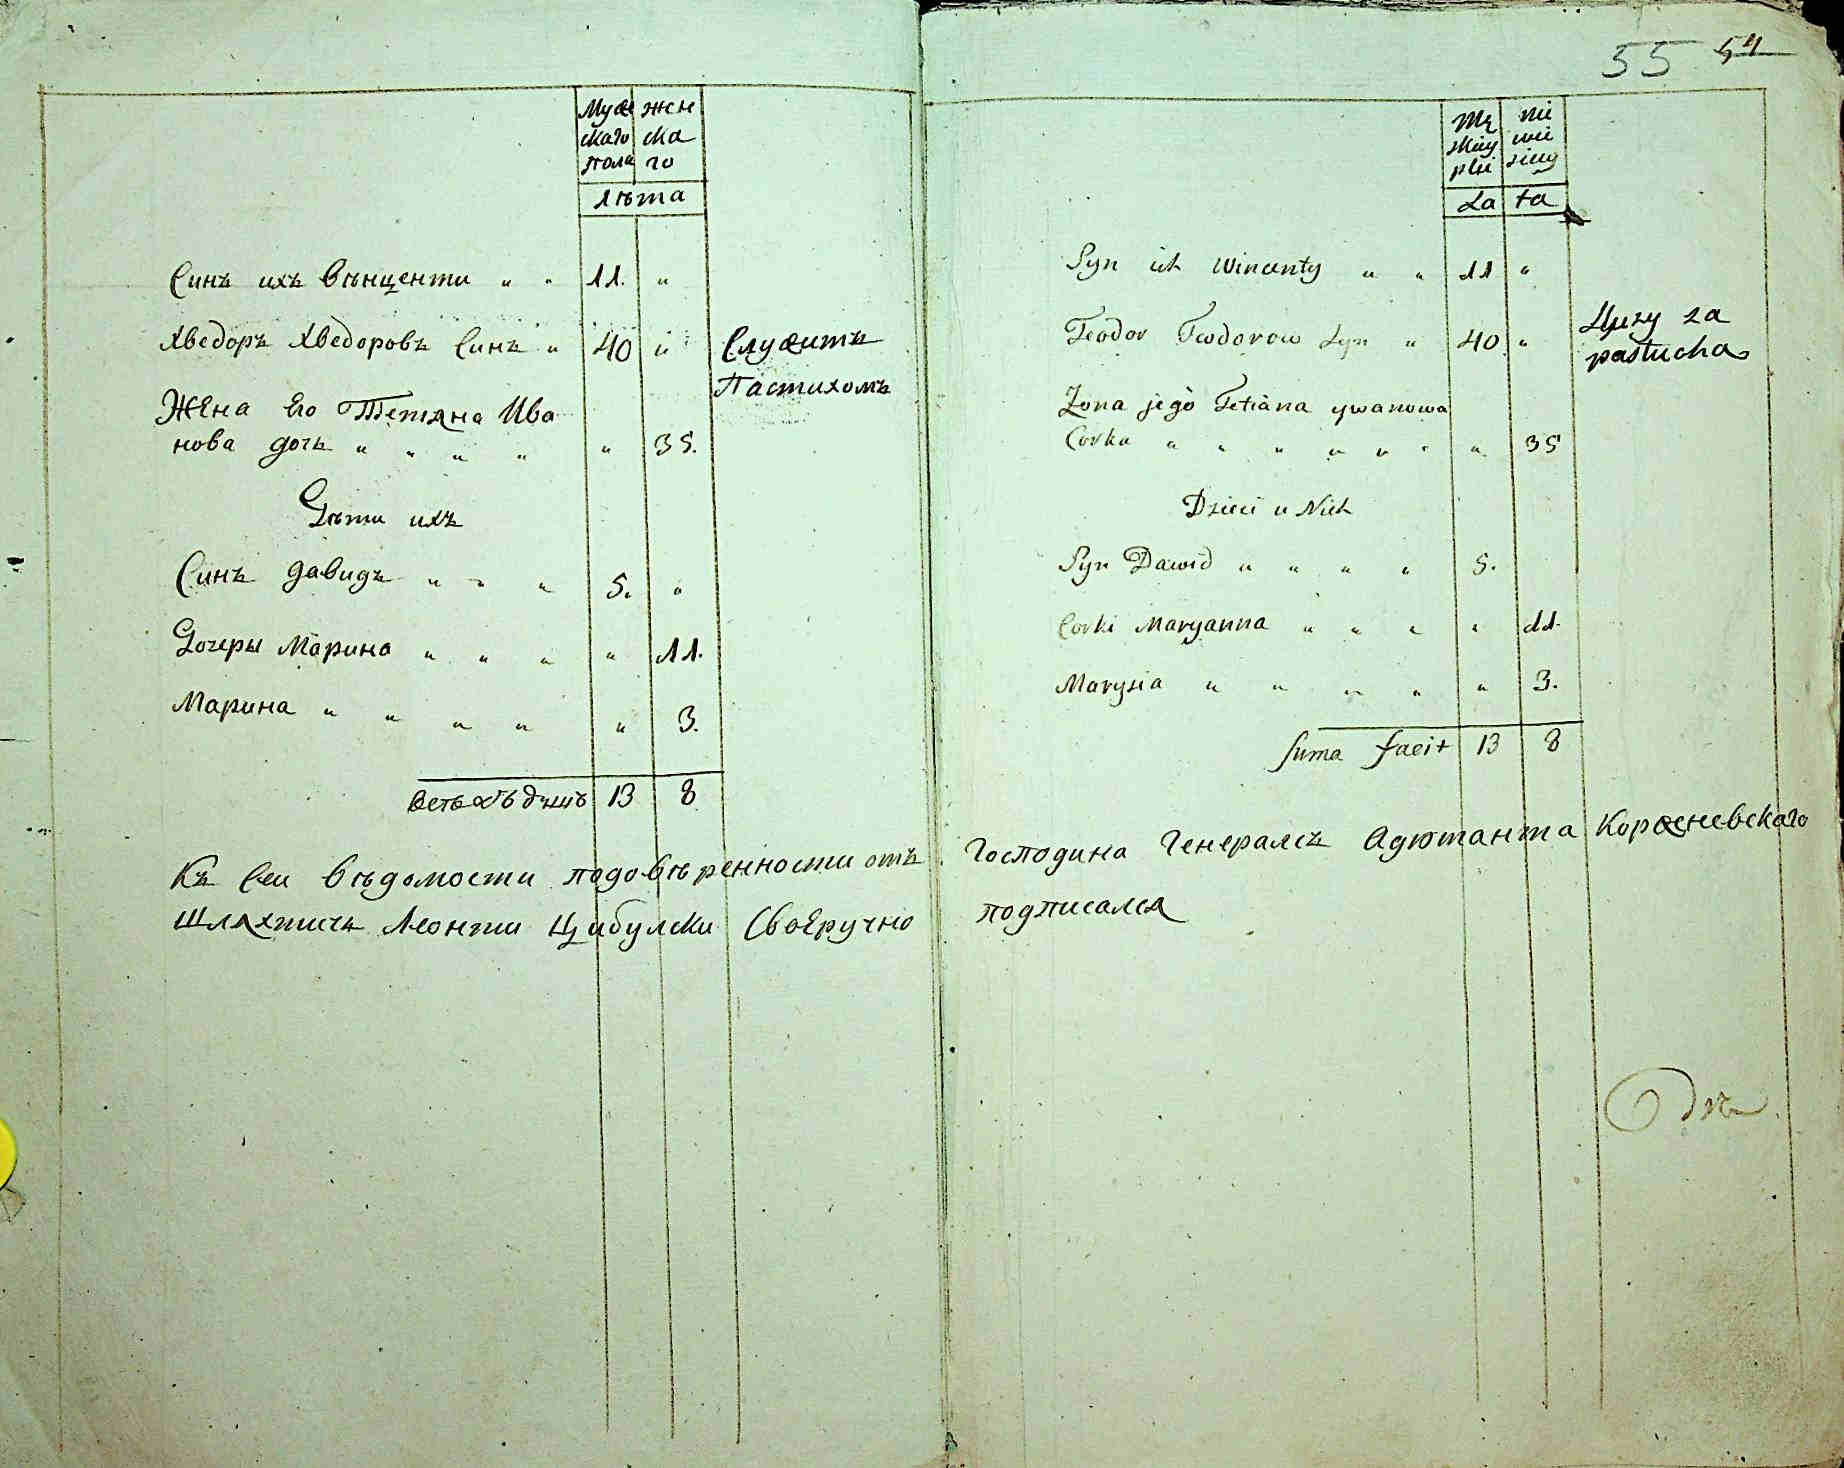 55 54
Муже
ского
пола
жен
ска
го
лѣта
Синъ ихъ Вѣнценти " " 11. "
Хведоръ Хведоровъ Синъ " 40 " Служитъ
Пастихомъ
Жена Его Тетяна Ива
нова дочь " " " " " 35.
Дѣти ихъ
Синъ Давидъ " " " 5. "
Дочеры Марина " " " " 11.
Марина " " " " " 3.
13 8
Mę
skiey
płci
nie
wie
sciey
La ta
Syn ich Wincenty " " 11 "
Teodor Teodorow Syn " 40 " Służy za
pastucha
Żona jego Tetiana ywanowa
Corka " " " " " " " 35
Dzieci u Nich
Syn Dawid " " " " 5.
Corki Maryanna " " " " 11.
Marysia " " " " " 3.
Suma facit 13 8
Къ сеи вѣдомости подовѣренности отъ Господина Генералсъ Адютанта Корженевскаго
Шляхтичь Леонти Цибулски Своеручно подписался